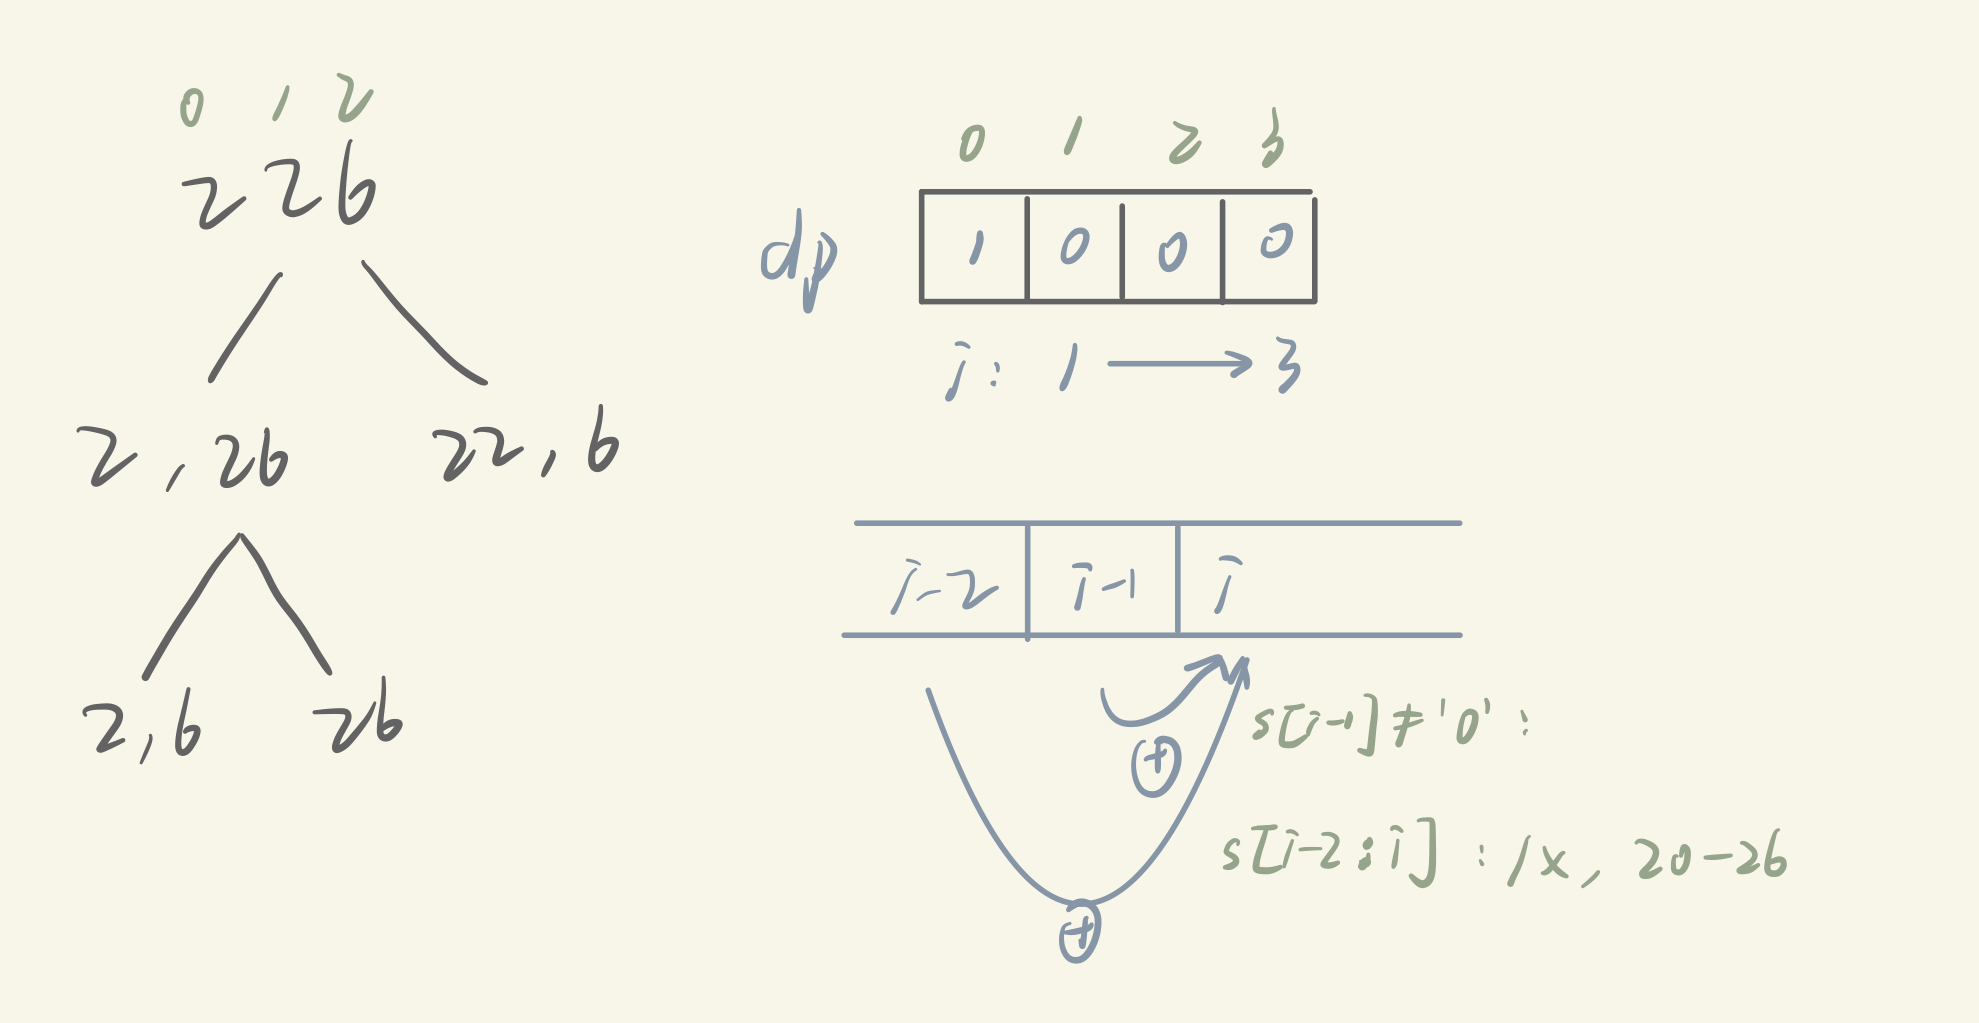 0 1 2
226
2, 26
22, 6
2, 6
26
0 1 2 3
dp 1 0 0 0
i: 1 → 3
i-2 i-1 i
+
s[i-1] ≠ '0' :
s[i-2:i] : 1x, 20-26
+